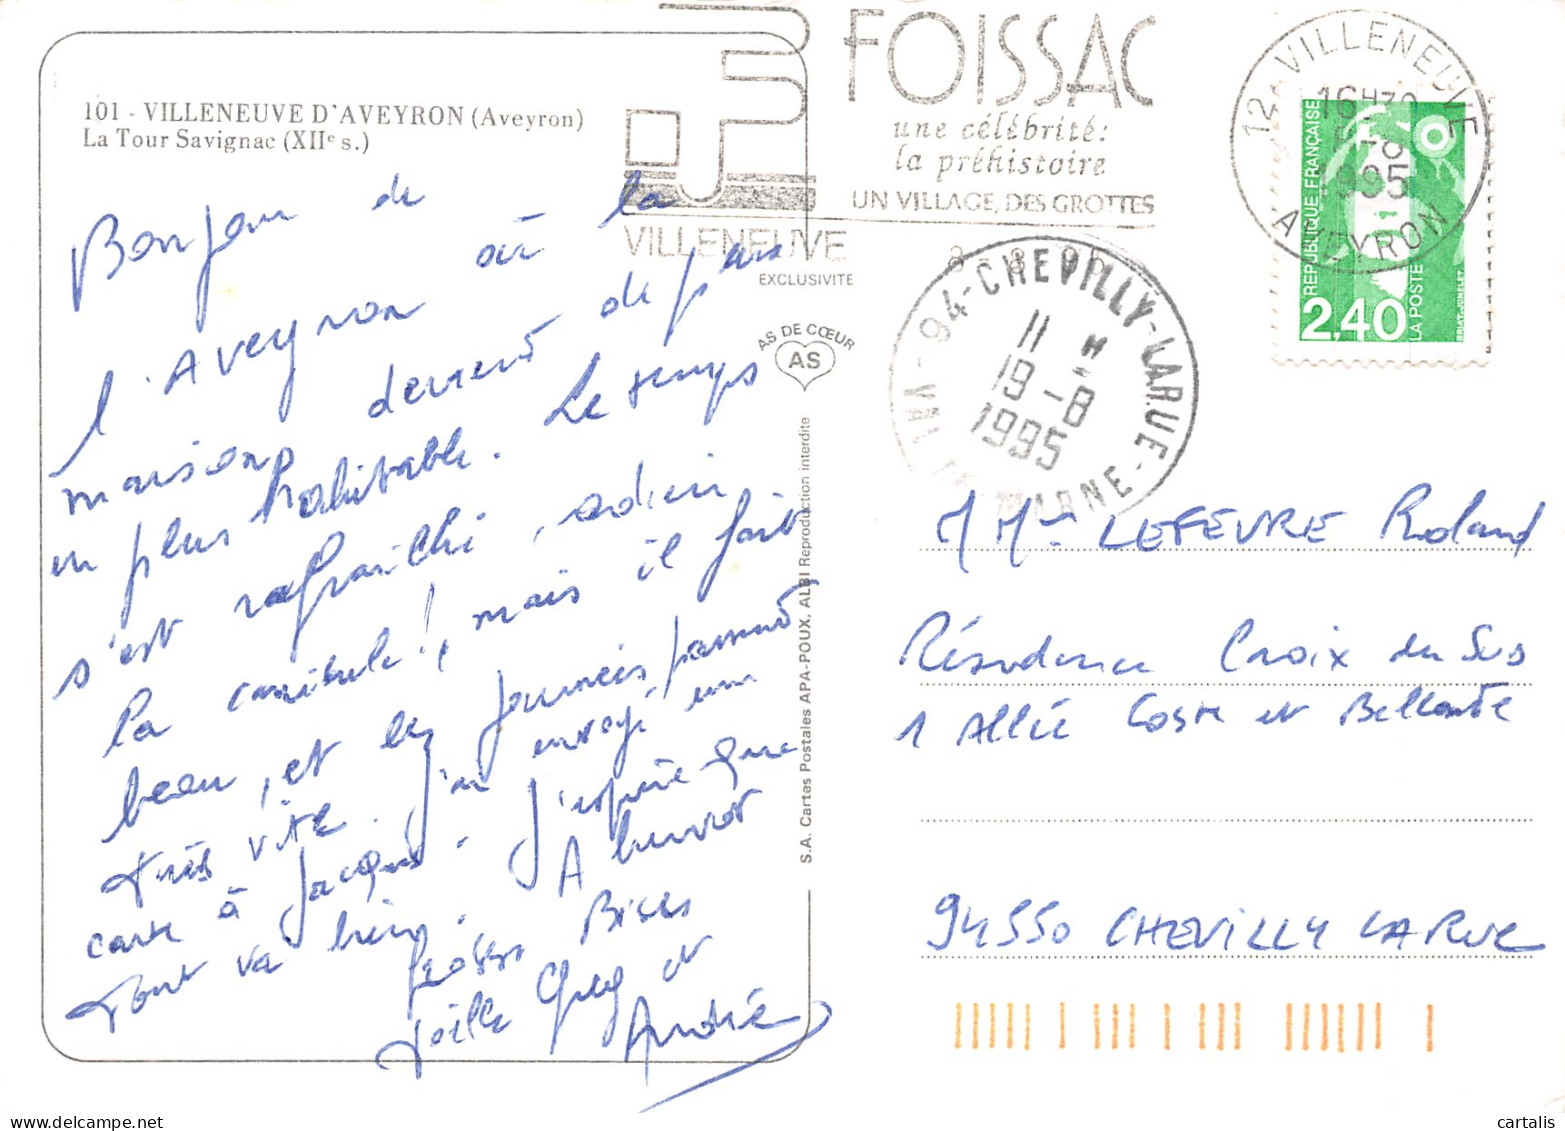 101 - VILLENEUVE D'AVEYRON (Aveyron)
La Tour Savignac (XIIe s.)
Bonjour de
l'Aveyron où la
maison devient de plus
en plus habitable. Le temps
s'est rafraichi, adieu
la canicule !, mais il fait
beau, et les journées passent
très vite. J'ai envoyé une
carte à Jacques. J'espère que
tout va bien. A bientot
Grosses Bises
Joëlle Greg et
André
VILLENEUVE
FOISSAC
une célébrité:
la préhistoire
UN VILLAGE, DES GROTTES
EXCLUSIVITE
AS DE CŒUR
AS
S.A. Cartes Postales APA-POUX, ALBI Reproduction interdite
12 VILLENEUVE
16H30
1995
AVEYRON
RÉPUBLIQUE FRANÇAISE
2,40
LA POSTE
BRIAT-JUMELET
94-CHEVILLY-LARUE-
11 H
19-8
1995
VAL DE MARNE
M Me LEFEVRE Roland
Résidence Croix du Sud
1 Allée Coste et Bellonte
94550 CHEVILLY LARUE